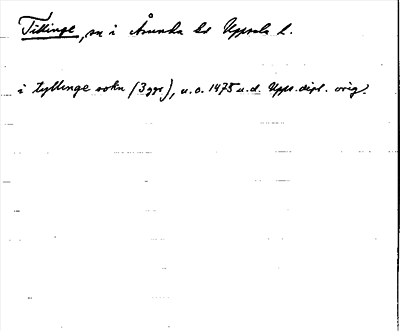 Tillinge, sn i Åsunda hd Uppsala l.
i tyllinge sokn (3 ggr), u.o. 1475 u.d. Upps. dipl. orig.